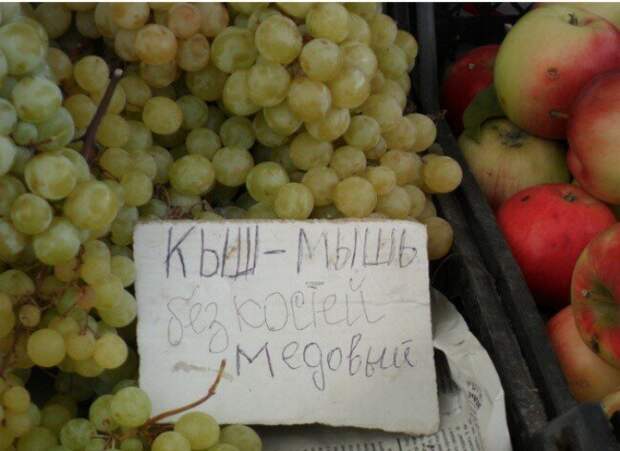 Кыш-мышь
без костей
медовый